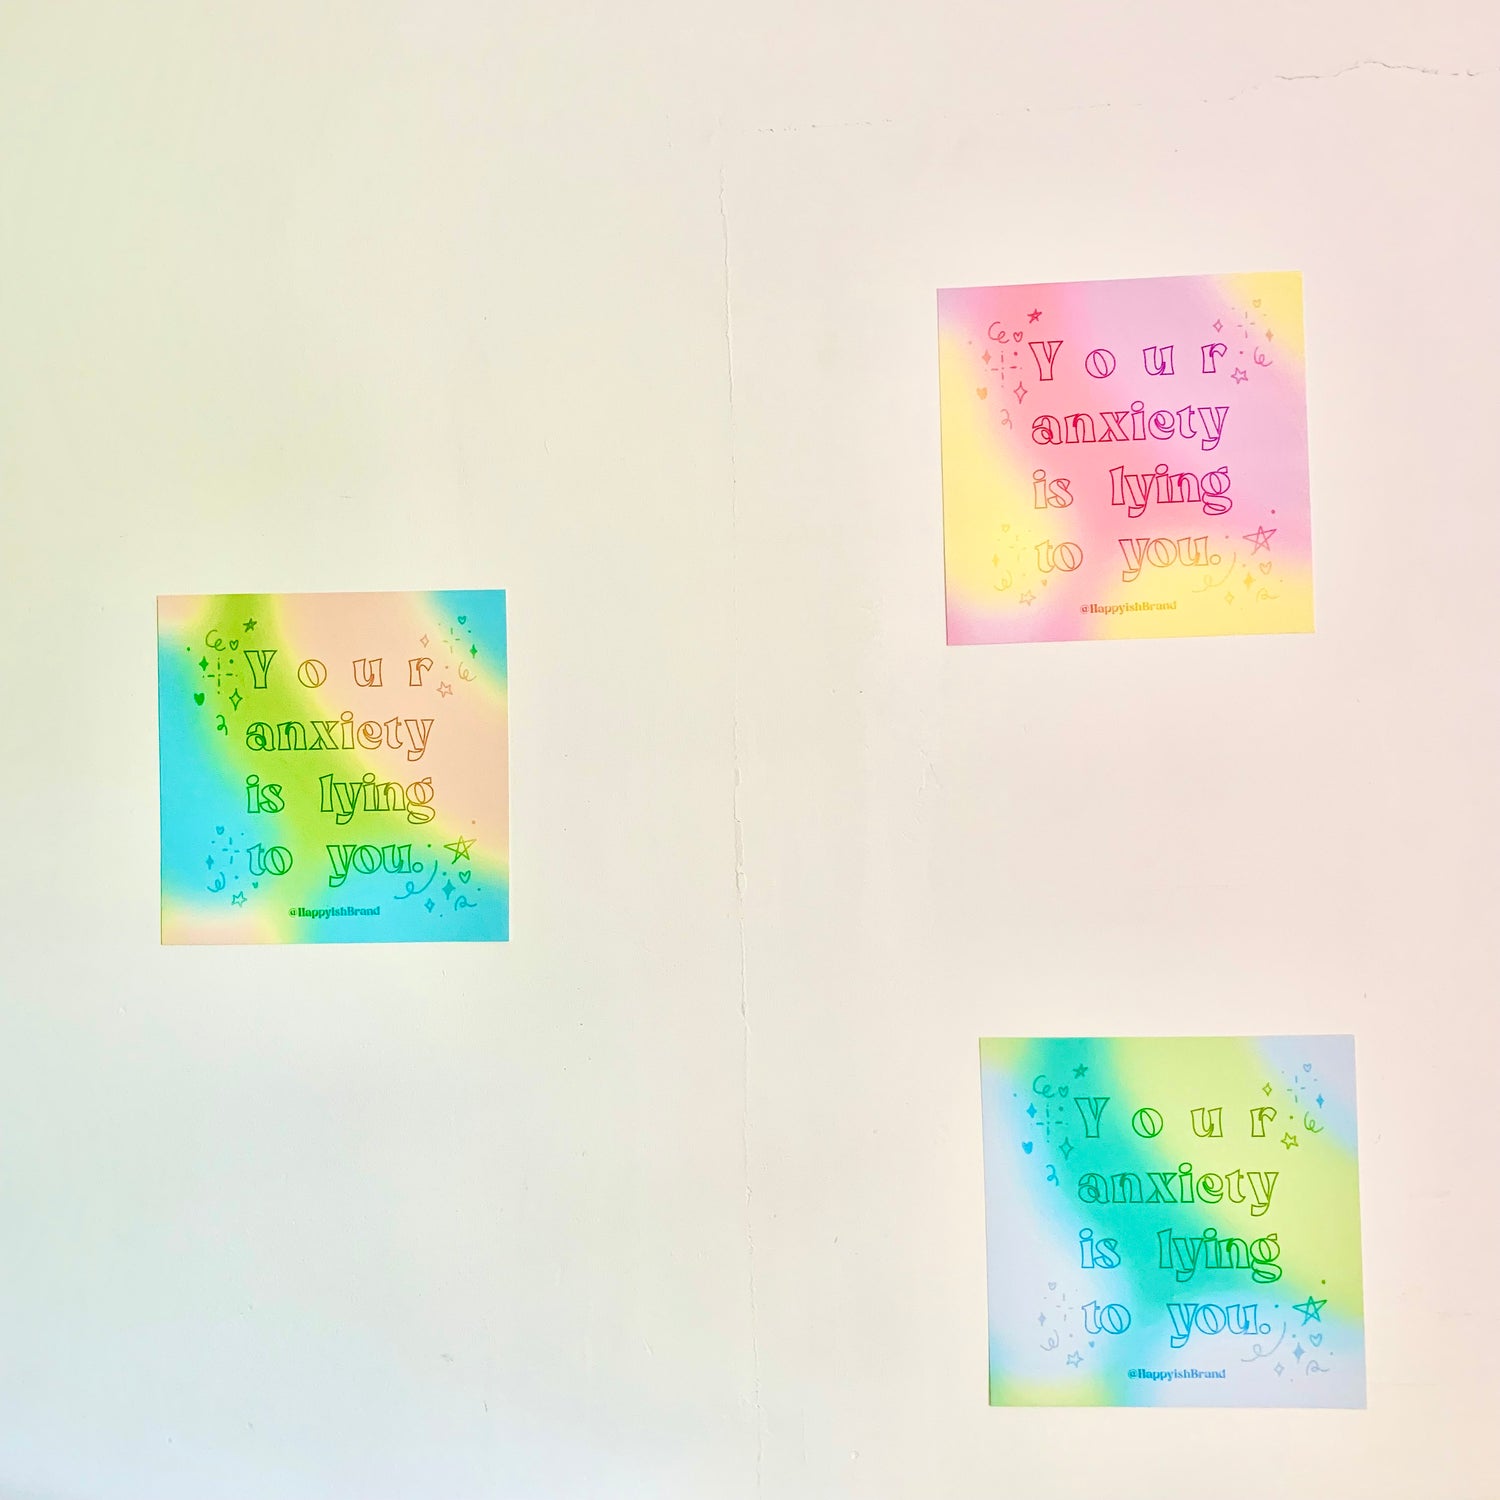 Your
anxiety
is lying
to you.
@HappyishBrand
Your
anxiety
is lying
to you.
@HappyishBrand
Your
anxiety
is lying
to you.
@HappyishBrand